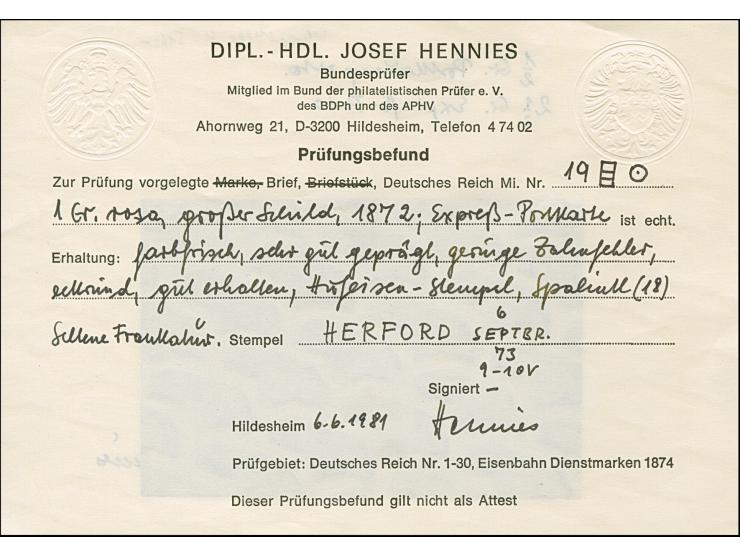 DIPL.-HDL. JOSEF HENNIES
Bundesprüfer
Mitglied im Bund der philatelistischen Prüfer e. V.
des BDPh und des APHV
Ahornweg 21, D-3200 Hildesheim, Telefon 4 74 02
Prüfungsbefund
Zur Prüfung vorgelegte Marke, Brief, Briefstück, Deutsches Reich Mi. Nr. 19
1 Gr. rosa, großer Schild, 1872, Expreß-Postkarte ist echt.
Erhaltung: farbfrisch, sehr gut geprägt, geringe Zahnfehler,
eckrund, gut erhalten, Hufeisen-Stempel, Spalink (18)
Seltene Frankatur. Stempel HERFORD 6 SEPTBR.
73
9-10V
Signiert –
Hildesheim 6.6.1981 Hennies
Prüfgebiet: Deutsches Reich Nr. 1-30, Eisenbahn Dienstmarken 1874
Dieser Prüfungsbefund gilt nicht als Attest